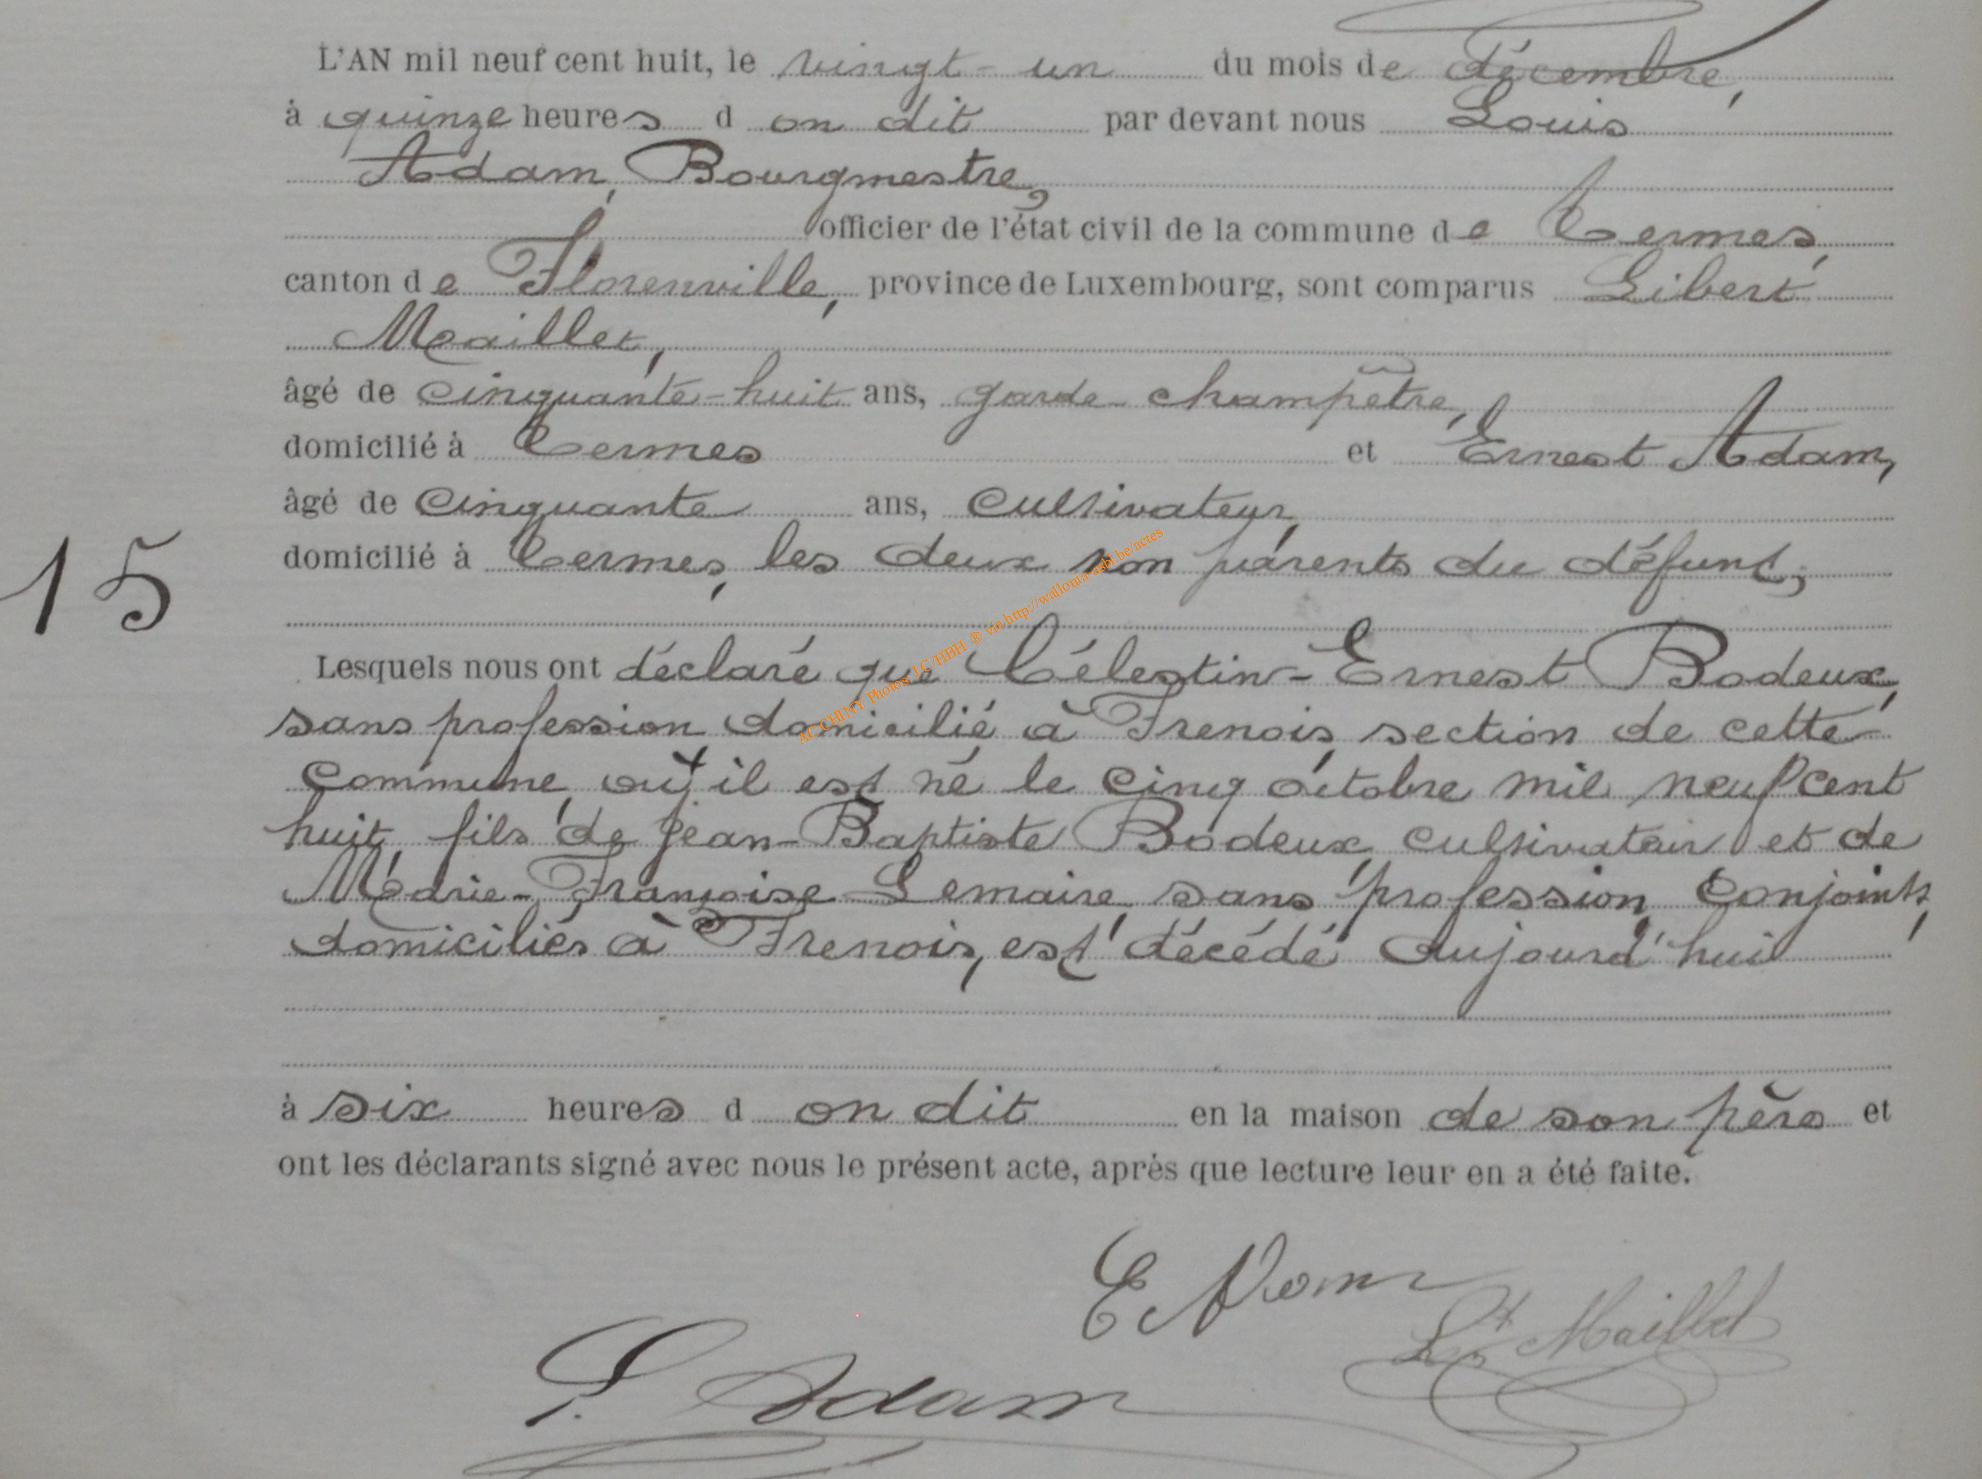 L'AN mil neuf cent huit, le vingt-un du mois de décembre,
à quinze heures d on dit par devant nous Louis
Adam, Bourgmestre,
officier de l'état civil de la commune de Termes,
canton de Florenville, province de Luxembourg, sont comparus Libert
Maillet,
âgé de cinquante-huit ans, garde-champêtre,
domicilié à Termes et Ernest Adam,
âgé de cinquante ans, cultivateur,
domicilié à Termes, les deux non parents du défunt;
15
Lesquels nous ont déclaré que Célestin-Ernest Bodeux,
sans profession domicilié à Frenois, section de cette
commune, où il est né le cinq octobre mil neuf cent
huit, fils de Jean-Baptiste Bodeux, cultivateur et de
Marie-Françoise Lemaire, sans profession, conjoints,
domiciliés à Frenois, est décédé aujourd'hui
à six heures d on dit en la maison de son père et
ont les déclarants signé avec nous le présent acte, après que lecture leur en a été faite.
E Adam
Lt Maillet
L. Adam
AC CHINY Photos LC HBH ® via http://wallonia-asbl.be/actes